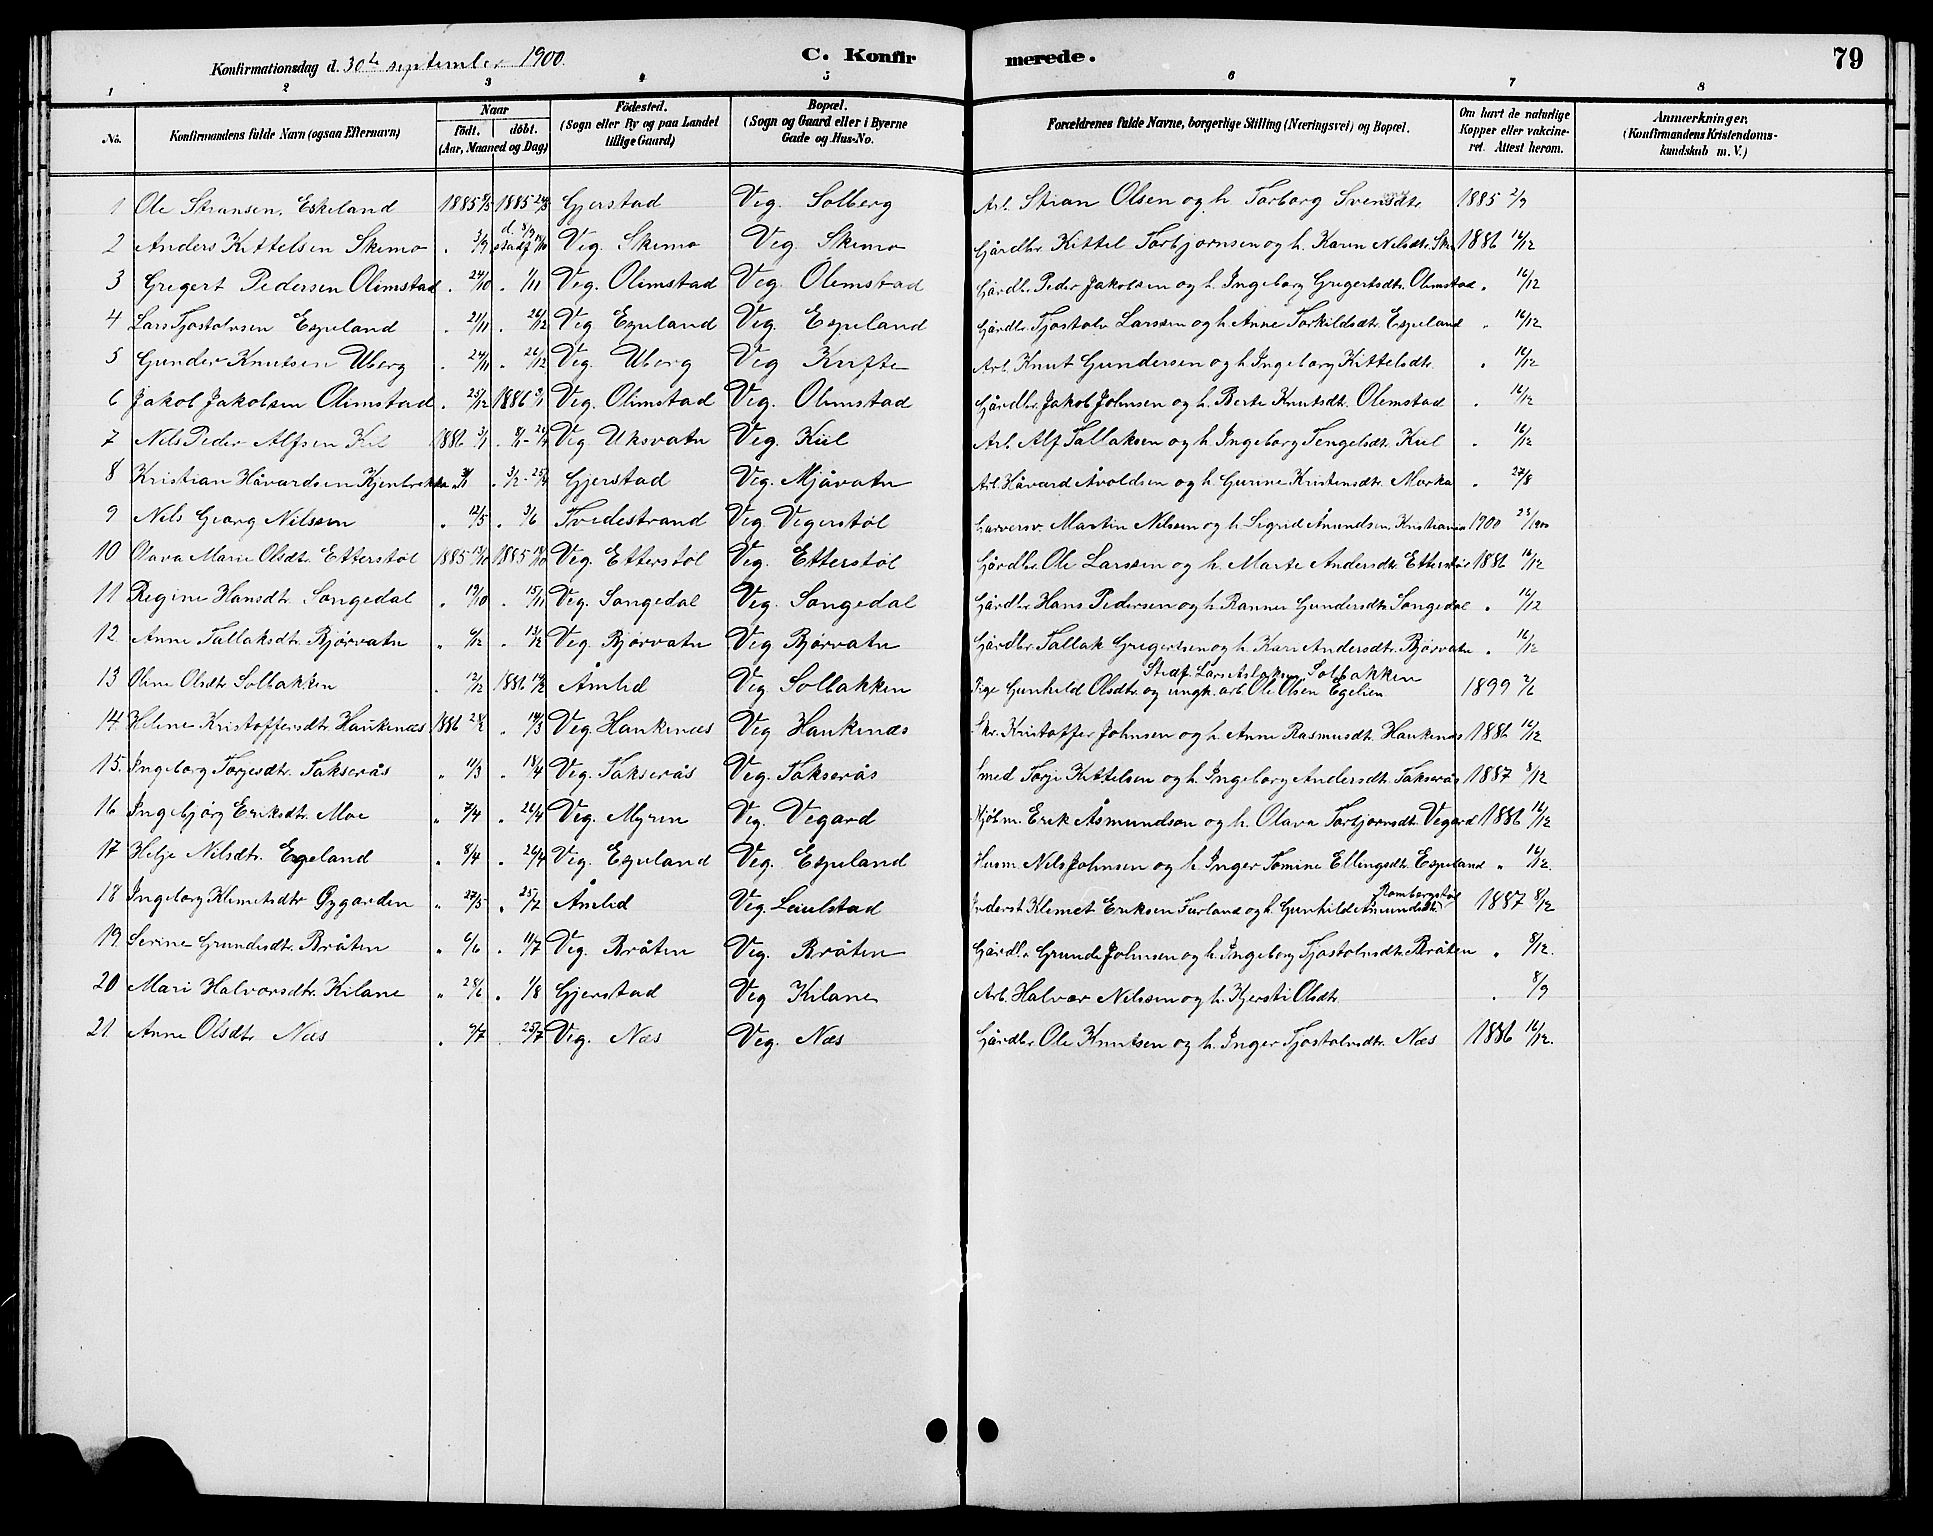 Konfirmationsdag d. 30te september 1900. C. Konfirmerede. 79
1 2 3 4 5 6 7 8
No. Konfirmandens fulde Navn (ogsaa Efternavn) Naar født. døbt. (Aar, Maaned og Dag) Fødested. (Sogn eller By og paa Landet tillige Gaard) Bopæl. (Sogn og Gaard eller i Byerne Gade og Hus-No. Forældrenes fulde Navne, borgerlige Stilling (Næringsvei) og Bopæl. Om havt de naturlige Kopper eller vakcineret. Attest herom. Anmærkninger, (Konfirmandens Kristendomskundskab m. V.)
1 Ole Stiansen Eskeland 1885 1885 24/5 Gjerstad Veg. Solberg Arb. Stian Olsen og h. Torborg Svensdtr. 1885 2/9
2 Anders Kittelsen Skimo . 3/9 Veg. Skimo Veg. Skimo Gårdbr. Kittel Torbjørnsen og h. Karen Nilsdtr. Ski 1886 16/12
3 Gregert Pedersen Olimstad . 24/10 . 1/11 Veg. Olimstad Veg. Olimstad Gårdbr. Peder Jakobsen og h. Ingeborg Gregertsdtr. Olimstad " 16/12
4 Lars Tjostolvsen Espeland . 21/11 . 26/12 Veg Espeland Veg. Espeland Gårdbr. Tjostolv Larssen og h. Anne Torkildsdtr. Espeland " 16/12
5 Gunder Knutsen Uberg . 24/11 . 26/12 Veg. Uberg Veg Kufte Arb. Knut Gundersen og h. Ingeborg Kittelsdtr. " 16/12
6 Jakob Jakobsen Olimstad . 25/12 1886 Veg. Olimstad Veg. Olimstad Gårdbr. Jakob Johnsen og h. Berte Knutsdtr. Olimstad . 16/12
7 Nils Peder Alfsen Kil 1886 3/1 Veg Uksvatn Veg. Kiil Arb. Alf Tallaksen og h. Ingeborg Tengelsdtr. Kiil . 16/12
8 Kristian Håvardsen . 3/2 - 25/4 Gjerstad Veg. Mjåvatn Arb. Håvard Åvoldsen og h. Gurine Kristensdtr. Morka . 27/8
9 Nils Georg Nilssen " 12/5 . 3/6 Tvedestrand Veg. Vegerstøl Garversv. Martin Nilsen og h. Sigrid Ånundsen, Kristiania 1900 23/1900
10 Olava Marie Olsdtr. Etterstøl 1885 1885 Veg. Etterstøl Veg. Etterstøl Gårdbr. Ole Larssen og h. Marte Andersdtr Etterstøl 1886 16/12
11 Regine Hansdtr. Songedal " 19/10 . 15/11 Veg. Songedal Veg. Songedal Gårdbr. Hans Pedersen og h. Ranner Gundersdtr. Songedal " 16/12
12 Anne Tallaksdtr. Bjørvatn " 6/12 . 13/12 Veg. Bjørvatn Veg Bjørvatn Gårdbr. Tallak Gregersen og h. Kari Andersdtr. Bjørvatn " 16/12
Stedf. Lars Aslaksen Solbakken
13 Oline Olsdtr. Solbakken . 12/12 1886 14/2 Åmlid Veg Solbakken Pige Gunhild Olsdtr. og ungk. arb. Ole Olsen Egelien 1899 2/6
14. Helene Kristoffersdtr. Haukenæs 1886 . 14/3 Veg. Haukenæs Veg Haukenæs Skr. Kristoffer Johnsen og h. Anne Rasmusdtr. Haukenæs 1886 16/12
15. Ingeborg Torjesdtr. Takserås " 11/3 . 18/4 Veg. Takserås Veg. Takserås Smed Torje Kittelsen og h. Ingeborg Andersdtr. Takserås 1887 8/12
16 Ingebjørg Eriksdtr. Moe " 7/4 . 26/4 Veg. Myren Veg. Vegard Kjøbm. Erik Åsmundson og h. Olava Torbjørnsdtr. Vegard 1886 16/12
17 Helje Nilsdtr. Egeland " 8/4 . 26/4 Veg. Espeland Veg. Espeland Husm. Nils Johnsen og h. Inger Tomine Ellingsdtr. Espeland " 16/12.
18 Ingeborg Klemetsdtr Øygarden " 27/5 . 25/7 Åmlid Veg. Leiulstad Inderst. Klemet Eriksen Furland og h. Gunhild Åmundsdtr. Rombergstøl 1887 8/12
19 Serine Grundesdtr. Bråten " 6/6 . 11/7 Veg. Bråten Veg. Bråten Gårdbr. Grunde Johnsen og h. Ingeborg Tjostolvsdtr. Bråten " 8/12.
20 Mari Halvorsdtr. Kilane " 28/6 . 1/8 Gjerstad Veg Kilane Arb. Halvor Nilssen og h. Kjersti Olsdtr. . 8/9
21. Anne Olsdtr. Næs . 4/7 . 25/7 Veg. Næs Veg. Næs Gårdbr. Ole Knutsen og h. Inger Tjostolvsdtr. Næs 1886 16/12.